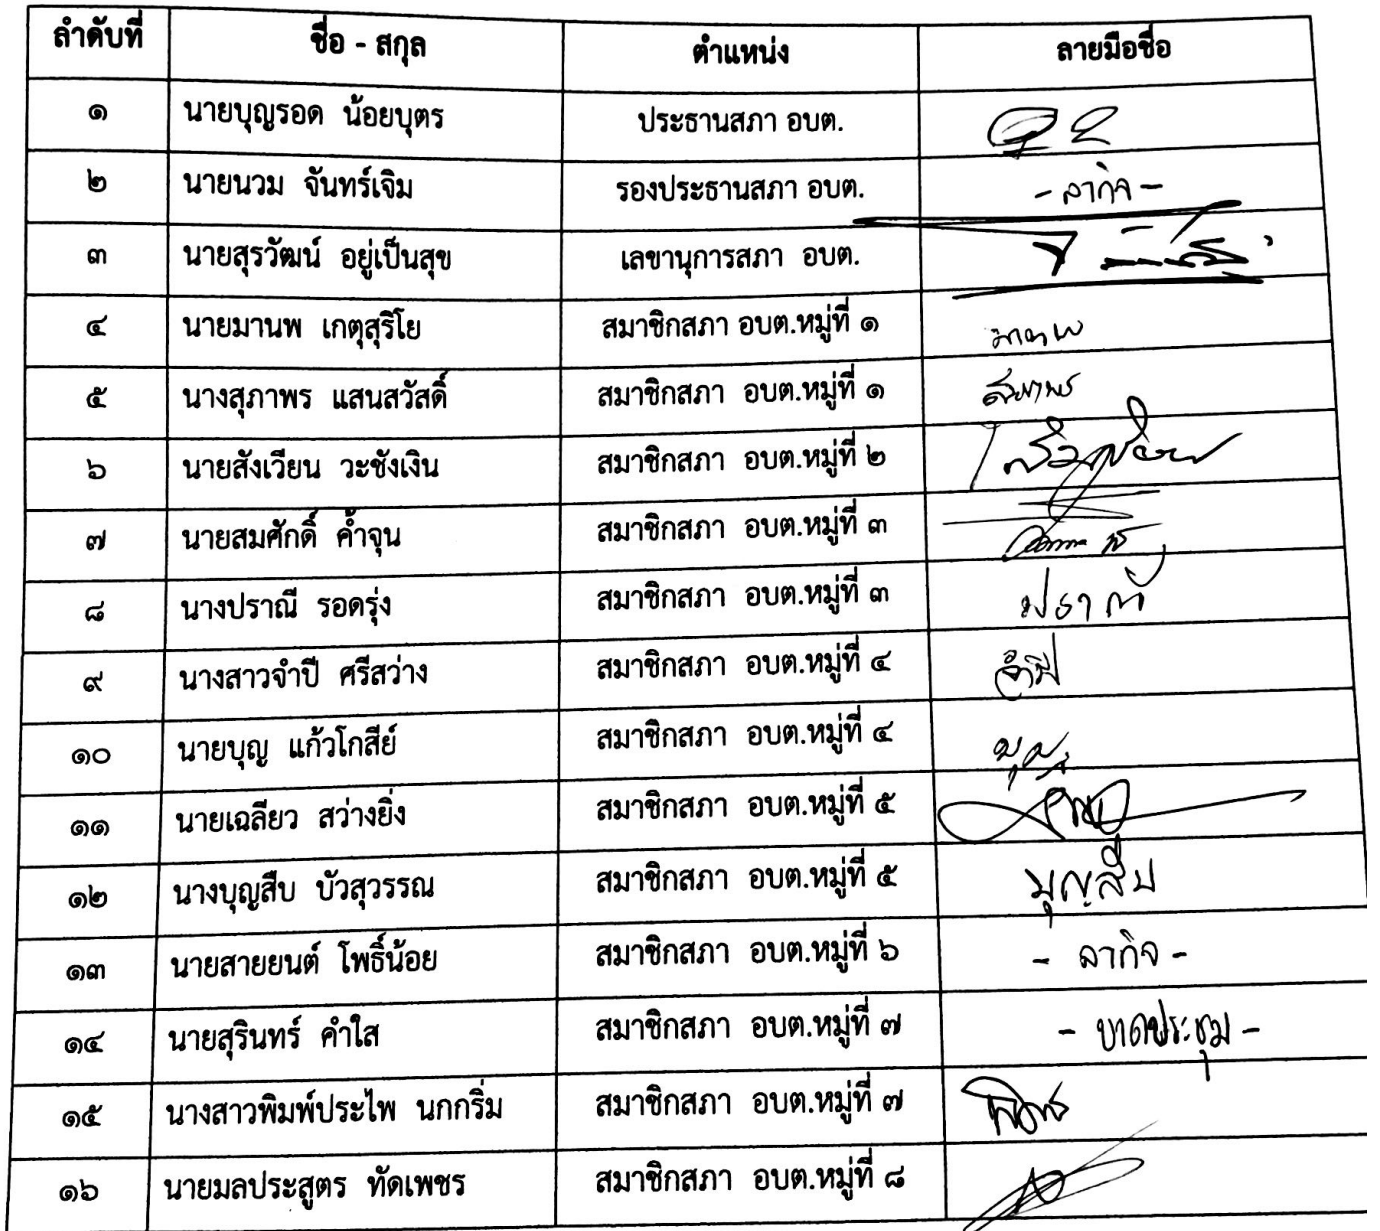 ลำดับที่ ชื่อ - สกุล ตำแหน่ง ลายมือชื่อ
๑ นายบุญรอด น้อยบุตร ประธานสภา อบต.
๒ นายนวม จันทร์เจิม รองประธานสภา อบต. - ลากิจ -
๓ นายสุรวัฒน์ อยู่เป็นสุข เลขานุการสภา อบต.
๔ นายมานพ เกตุสุริโย สมาชิกสภา อบต.หมู่ที่ ๑ มานพ
๕ นางสุภาพร แสนสวัสดิ์ สมาชิกสภา อบต.หมู่ที่ ๑ สุภาพร
๖ นายสังเวียน วะชังเงิน สมาชิกสภา อบต.หมู่ที่ ๒
๗ นายสมศักดิ์ ค้ำจุน สมาชิกสภา อบต.หมู่ที่ ๓
๘ นางปราณี รอดรุ่ง สมาชิกสภา อบต.หมู่ที่ ๓ ปราณี
๙ นางสาวจำปี ศรีสว่าง สมาชิกสภา อบต.หมู่ที่ ๔ จำปี
๑๐ นายบุญ แก้วโกสีย์ สมาชิกสภา อบต.หมู่ที่ ๔ บุญ
๑๑ นายเฉลียว สว่างยิ่ง สมาชิกสภา อบต.หมู่ที่ ๕
๑๒ นางบุญสืบ บัวสุวรรณ สมาชิกสภา อบต.หมู่ที่ ๕ บุญสืบ
๑๓ นายสายยนต์ โพธิ์น้อย สมาชิกสภา อบต.หมู่ที่ ๖ - ลากิจ -
๑๔ นายสุรินทร์ คำใส สมาชิกสภา อบต.หมู่ที่ ๗ - ขาดประชุม -
๑๕ นางสาวพิมพ์ประไพ นกกริ่ม สมาชิกสภา อบต.หมู่ที่ ๗
๑๖ นายมลประสูตร ทัดเพชร สมาชิกสภา อบต.หมู่ที่ ๘